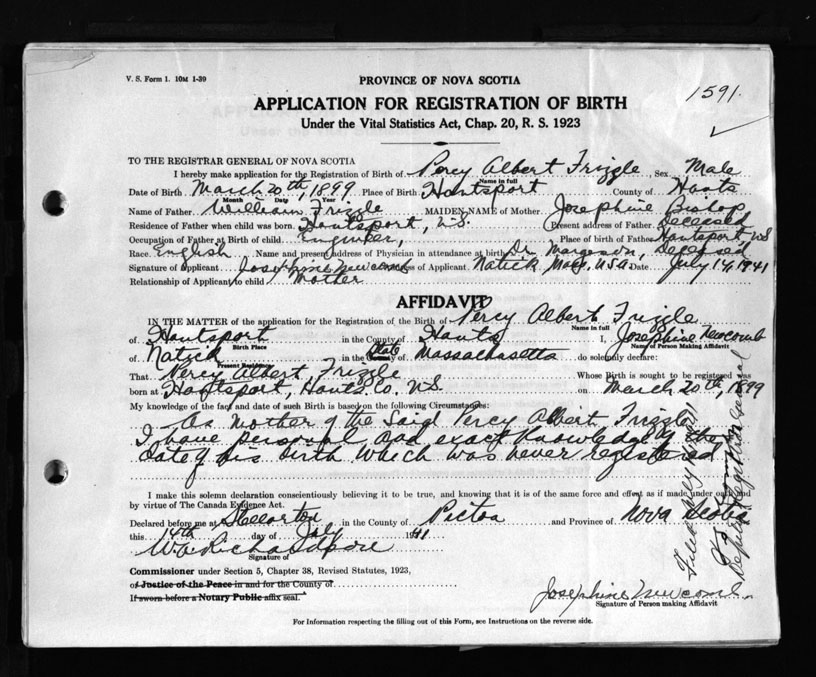 V. S. Form 1. 10M 1-39
PROVINCE OF NOVA SCOTIA
1591.
APPLICATION FOR REGISTRATION OF BIRTH
Under the Vital Statistics Act, Chap. 20, R. S. 1923
TO THE REGISTRAR GENERAL OF NOVA SCOTIA
I hereby make application for the Registration of Birth of Percy Albert Frizzle, Sex Male
Name in full
Date of Birth March 20th, 1899 Place of Birth Hantsport County of Hants
Month Date Year
Name of Father William Frizzle MAIDEN NAME of Mother Josephine Bishop
Residence of Father when child was born. Hantsport, N.S. Present address of Father. Deceased
Occupation of Father at Birth of child Engineer, Place of birth of Father Hantsport, N.S
Race. English Name and present address of Physician in attendance at birth Dr Margeson, Deceased
Signature of Applicant Josephine Newcomb Address of Applicant Natick Mass. USA. Date July 14, 1941
Relationship of Applicant to child Mother
AFFIDAVIT
IN THE MATTER of the application for the Registration of the Birth of Percy Albert Frizzle
Name in full
of Hantsport in the County of Hants I, Josephine Newcomb
Birth Place Name of Person Making Affidavit
of Natick in the State of Massachusetts do solemnly declare:
Present Residence
That Percy Albert Frizzle Whose Birth is sought to be registered was
born at Hantsport, Hants Co. N.S. on March 20th, 1899
My knowledge of the fact and date of such Birth is based on the following Circumstances:
As Mother of the Said Percy Albert Frizzle
I have personal and exact knowledge of the
date of his birth which was never registered
I make this solemn declaration conscientiously believing it to be true, and knowing that it is of the same force and effect as if made under oath and
by virtue of The Canada Evidence Act.
Declared before me at Stellarton in the County of Pictou and Province of Nova Scotia
this 14th day of July 1941
Signature of
Commissioner under Section 5, Chapter 38, Revised Statutes, 1923,
or Justice of the Peace in and for the County of
If sworn before a Notary Public affix seal.
Josephine Newcomb.
Signature of Person making Affidavit
For Information respecting the filling out of this Form, see Instructions on the reverse side.
Deputy Registrar General